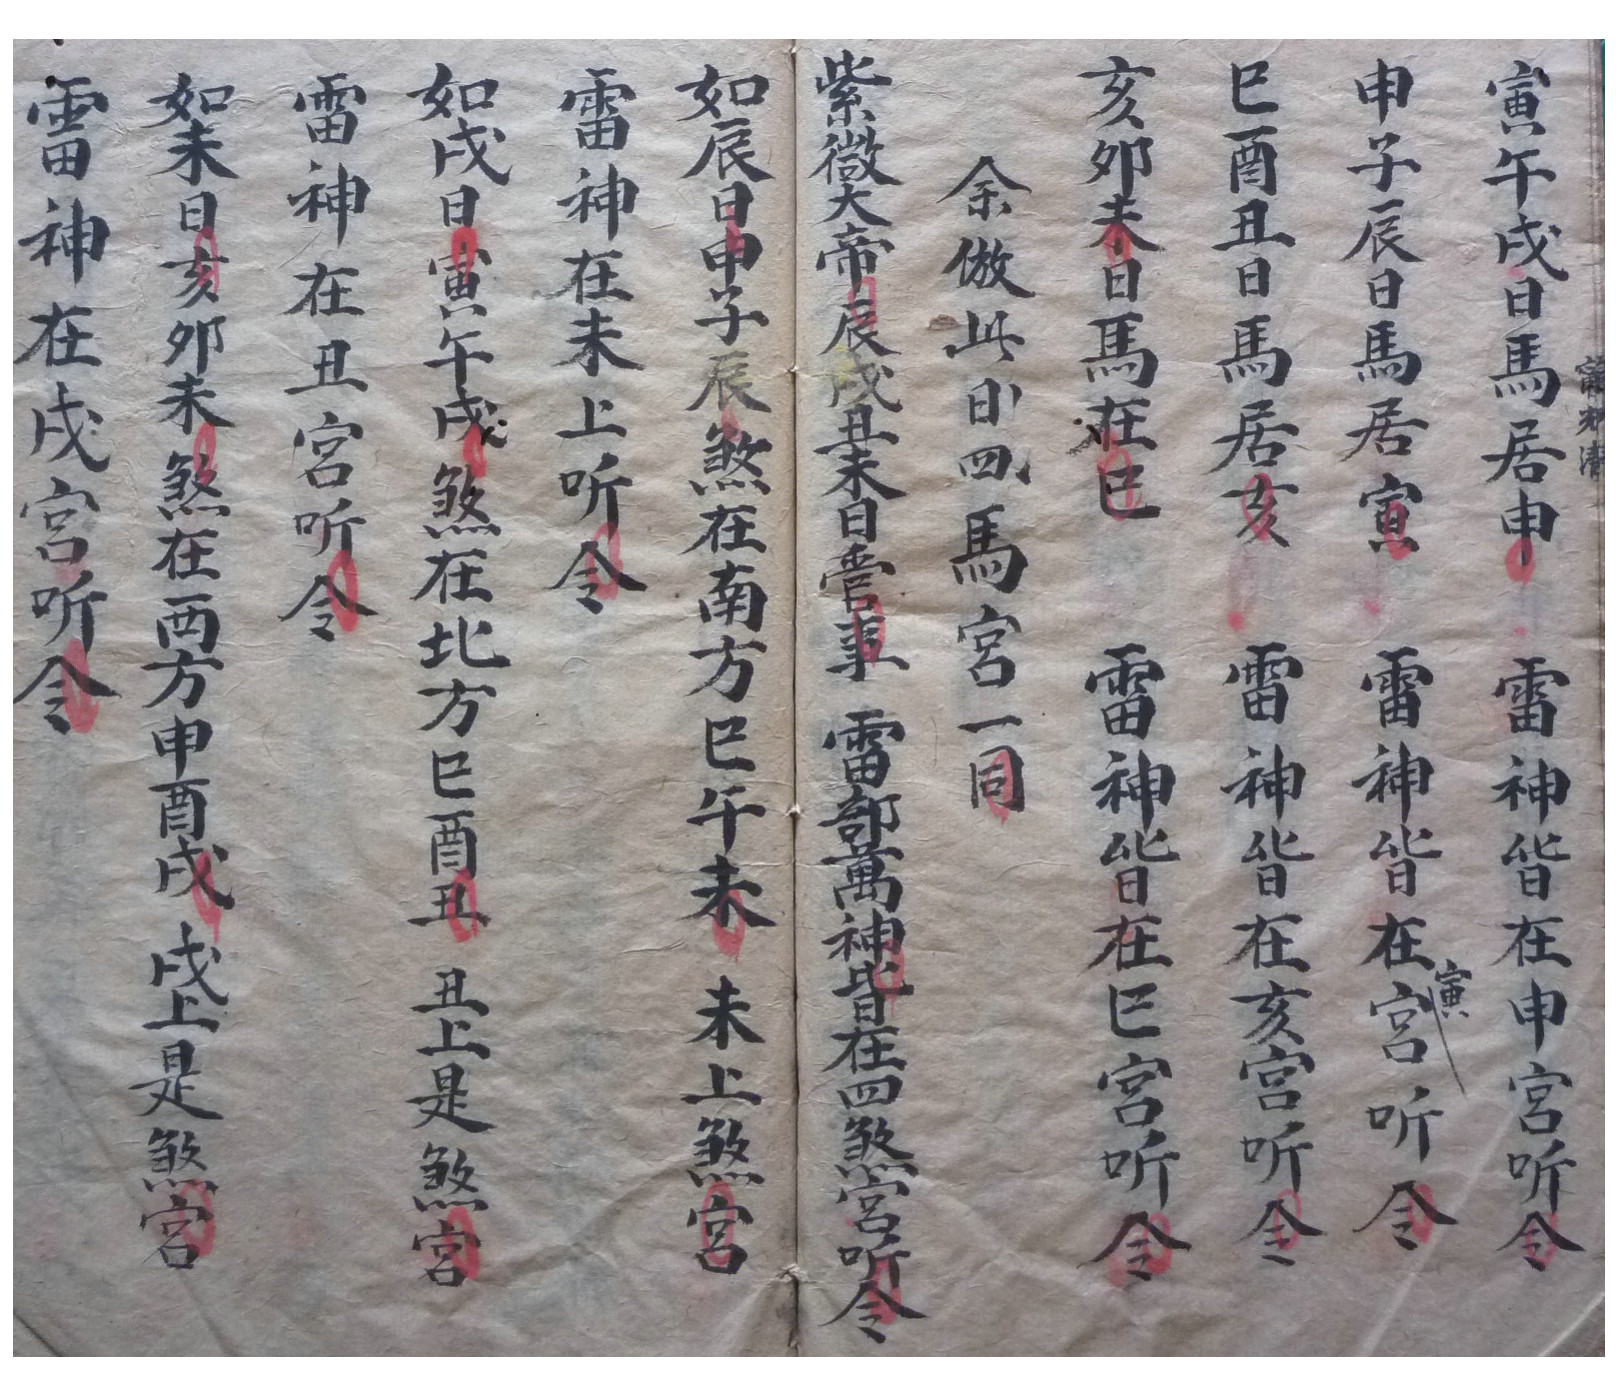 寅午戌日馬居申　雷神皆在申宮听令
申子辰日馬居寅　雷神皆在寅宮听令
巳酉丑日馬居亥　雷神皆在亥宮听令
亥卯未日馬在巳　雷神皆在巳宮听令
余倣此日四馬宮一同
紫微大帝辰戌丑未日善事　雷部萬神皆在四煞宮听令
如辰日申子辰煞在南方巳午未　未上煞宮
雷神在未上听令
如戌日寅午戌煞在北方巳酉丑　丑上是煞宮
雷神在丑宮听令
如未日亥卯未煞在西方申酉戌　戌上是煞宮
雷神在戌宮听令